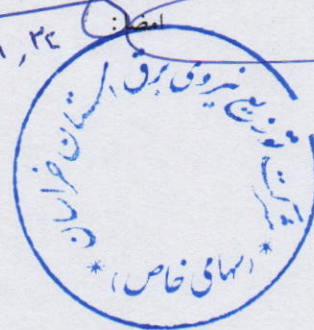 امضا:
شرکت توزیع نیروی برق استان خراسان
* (سهامی خاص) *